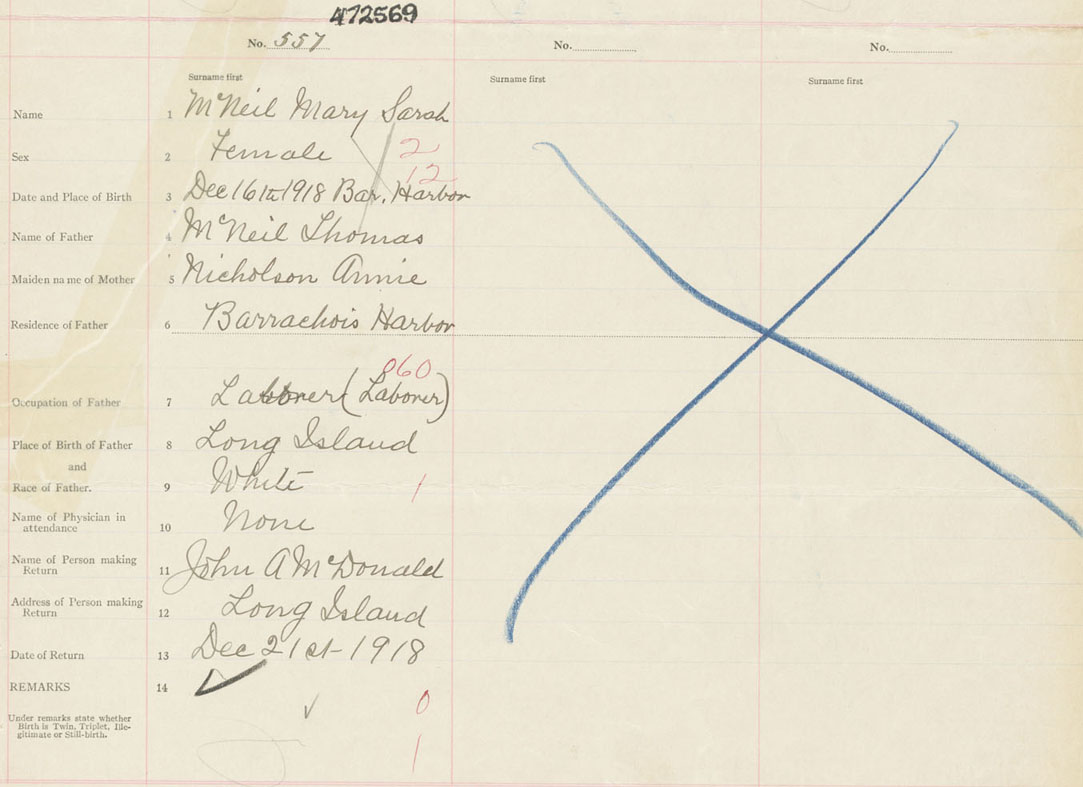 472569
No. 557
No.
No.
Surname first
Surname first
Surname first
Name 1 McNeil Mary Sarah
Sex 2 Female 2
12
Date and Place of Birth 3 Dec 16th 1918 Bar. Harbor
Name of Father 4 McNeil Thomas
Maiden name of Mother 5 Nicholson Annie
Residence of Father 6 Barrachois Harbor
060
Occupation of Father 7 Laborer (Laborer)
Place of Birth of Father 8 Long Island
and
Race of Father. 9 White 1
Name of Physician in
attendance 10 None
Name of Person making
Return 11 John A McDonald
Address of Person making
Return 12 Long Island
Date of Return 13 Dec 21st-1918
REMARKS 14
0
Under remarks state whether
Birth is Twin, Triplet, Ille-
gitimate or Still-birth.
1